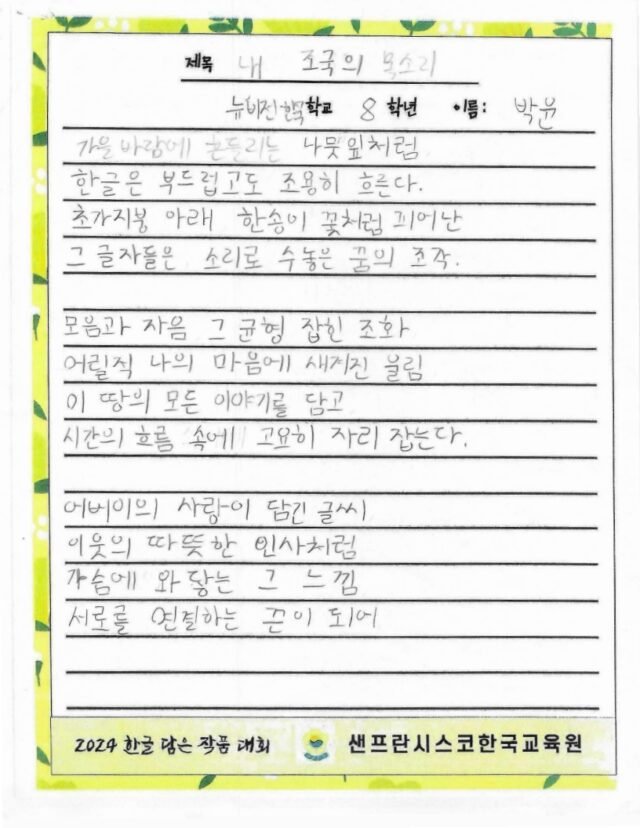 제목 내 조국의 목소리
뉴비전한국학교 8 학년 이름: 박윤
가을 바람에 흔들리는 나뭇잎처럼
한글은 부드럽고도 조용히 흐른다.
초가지붕 아래 한송이 꽃처럼 피어난
그 글자들은 소리로 수놓은 꿈의 조각.
모음과 자음 그 균형 잡힌 조화
어릴적 나의 마음에 새겨진 울림
이 땅의 모든 이야기를 담고
시간의 흐름 속에 고요히 자리 잡는다.
어버이의 사랑이 담긴 글씨
이웃의 따뜻한 인사처럼
가슴에 와 닿는 그 느낌
서로를 연결하는 끈이 되어
2024 한글 담은 작품 대회 샌프란시스코한국교육원